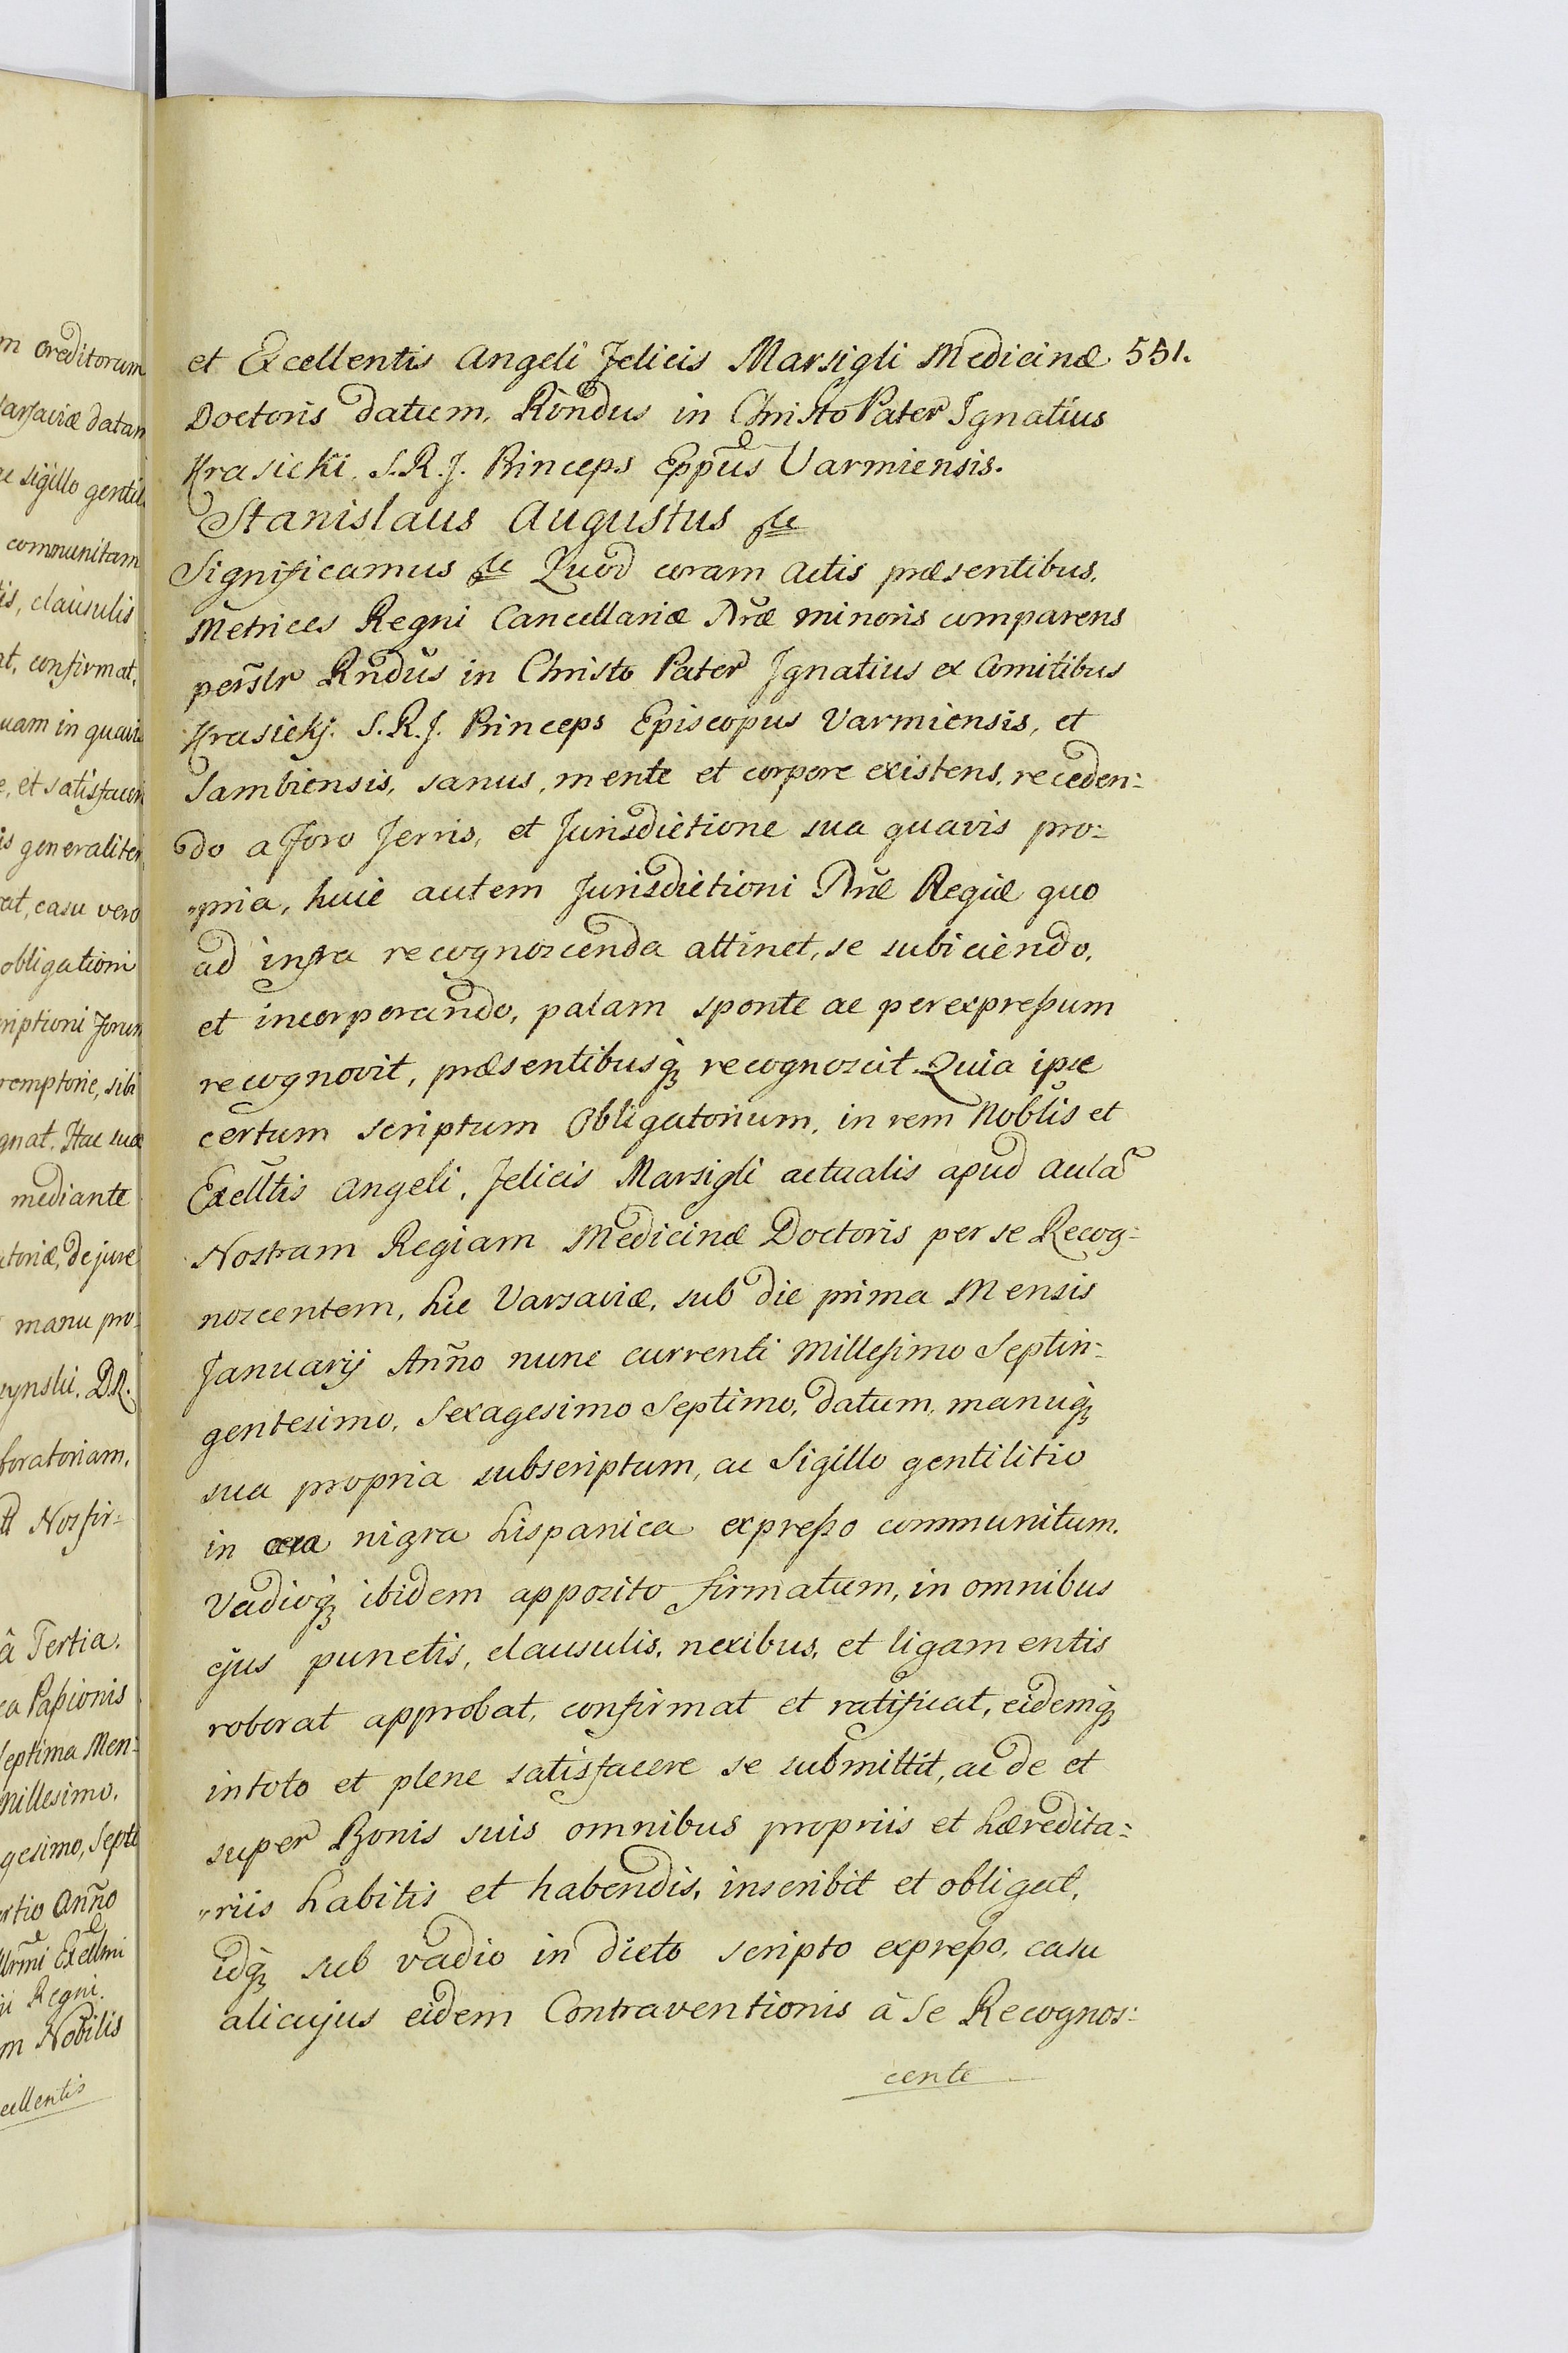 et Excellentis Angeli Felicis Marsigli Medicinæ 551.
Doctoris datum, Rñdus in Christo Pater Ignatius
Krasicki. S.R.J. Princeps Eppũs Varmiensis.
Stanislaus Augustus &c
Significamus &c Quod coram Actis præsentibus,
Metrices Regni Cancellariæ Nr̃æ minoris comparens
persl̃r Rñdus in Christo Pater Ignatius ex Comitibus
Krasickj. S.R.J. Princeps Episcopus Varmiensis, et
Sambiensis, sanus, mente et corpore existens, receden-
do a Foro Terris, et Jurisdictione sua quavis pro-
pria, huic autem Jurisdictioni Nr̃æ Regiæ quo
ad infra recognoscenda attinet, se subiciendo,
et incorporando, palam sponte ac per expressum
recognovit, præsentibusq; recognoscit. Quia ipse
certum scriptum Obligatorium, in rem Nobl̃is et
Excell̃tis Angeli, Felicis Marsigli actualis apud aulã
Nostram Regiam Medicinæ Doctoris per se Recog-
noscentem, hic Varsaviæ, sub die prima Mensis
Januarij Anño nunc currenti Millesimo Septin-
gentesimo, Sexagesimo Septimo, datum, manuq;
sua propria subscriptum, ac Sigillo gentilitio
in cera nigra hispanica expresso communitum.
Vadioq; ibidem apposito firmatum, in omnibus
ejus punctis, clausulis, nexibus, et ligamentis
roborat approbat, confirmat et ratificat, eidemq;
in toto et plene satisfacere se submittit, ac de et
super Bonis suis omnibus propriis et hæredita-
riis habitis et habendis, inscribit et obligat,
idq; sub vadio in dicto scripto expresso, casu
alicujus eidem Contraventionis à Se Recognos-
cente
m Creditorum
arsaviæ datam
sigillo gentil
communitam
is, clausulis
at, confirmat,
uam in quavis
e, et satisfacen
is generaliter
at, casu vero
obligationi
riptioni Forum
remptorie, sibi
gnat. Hac suæ
mediante
atoriæ, de jure
manu pro-
zynski. DR.
boratoriam,
Nos fir-
â Tertia.
ca Passionis
Septima Men-
Millesimo,
gesimo, Septi
rtio Anño
Excell̃mi
ii Regni.
m Nobilis
cellentis